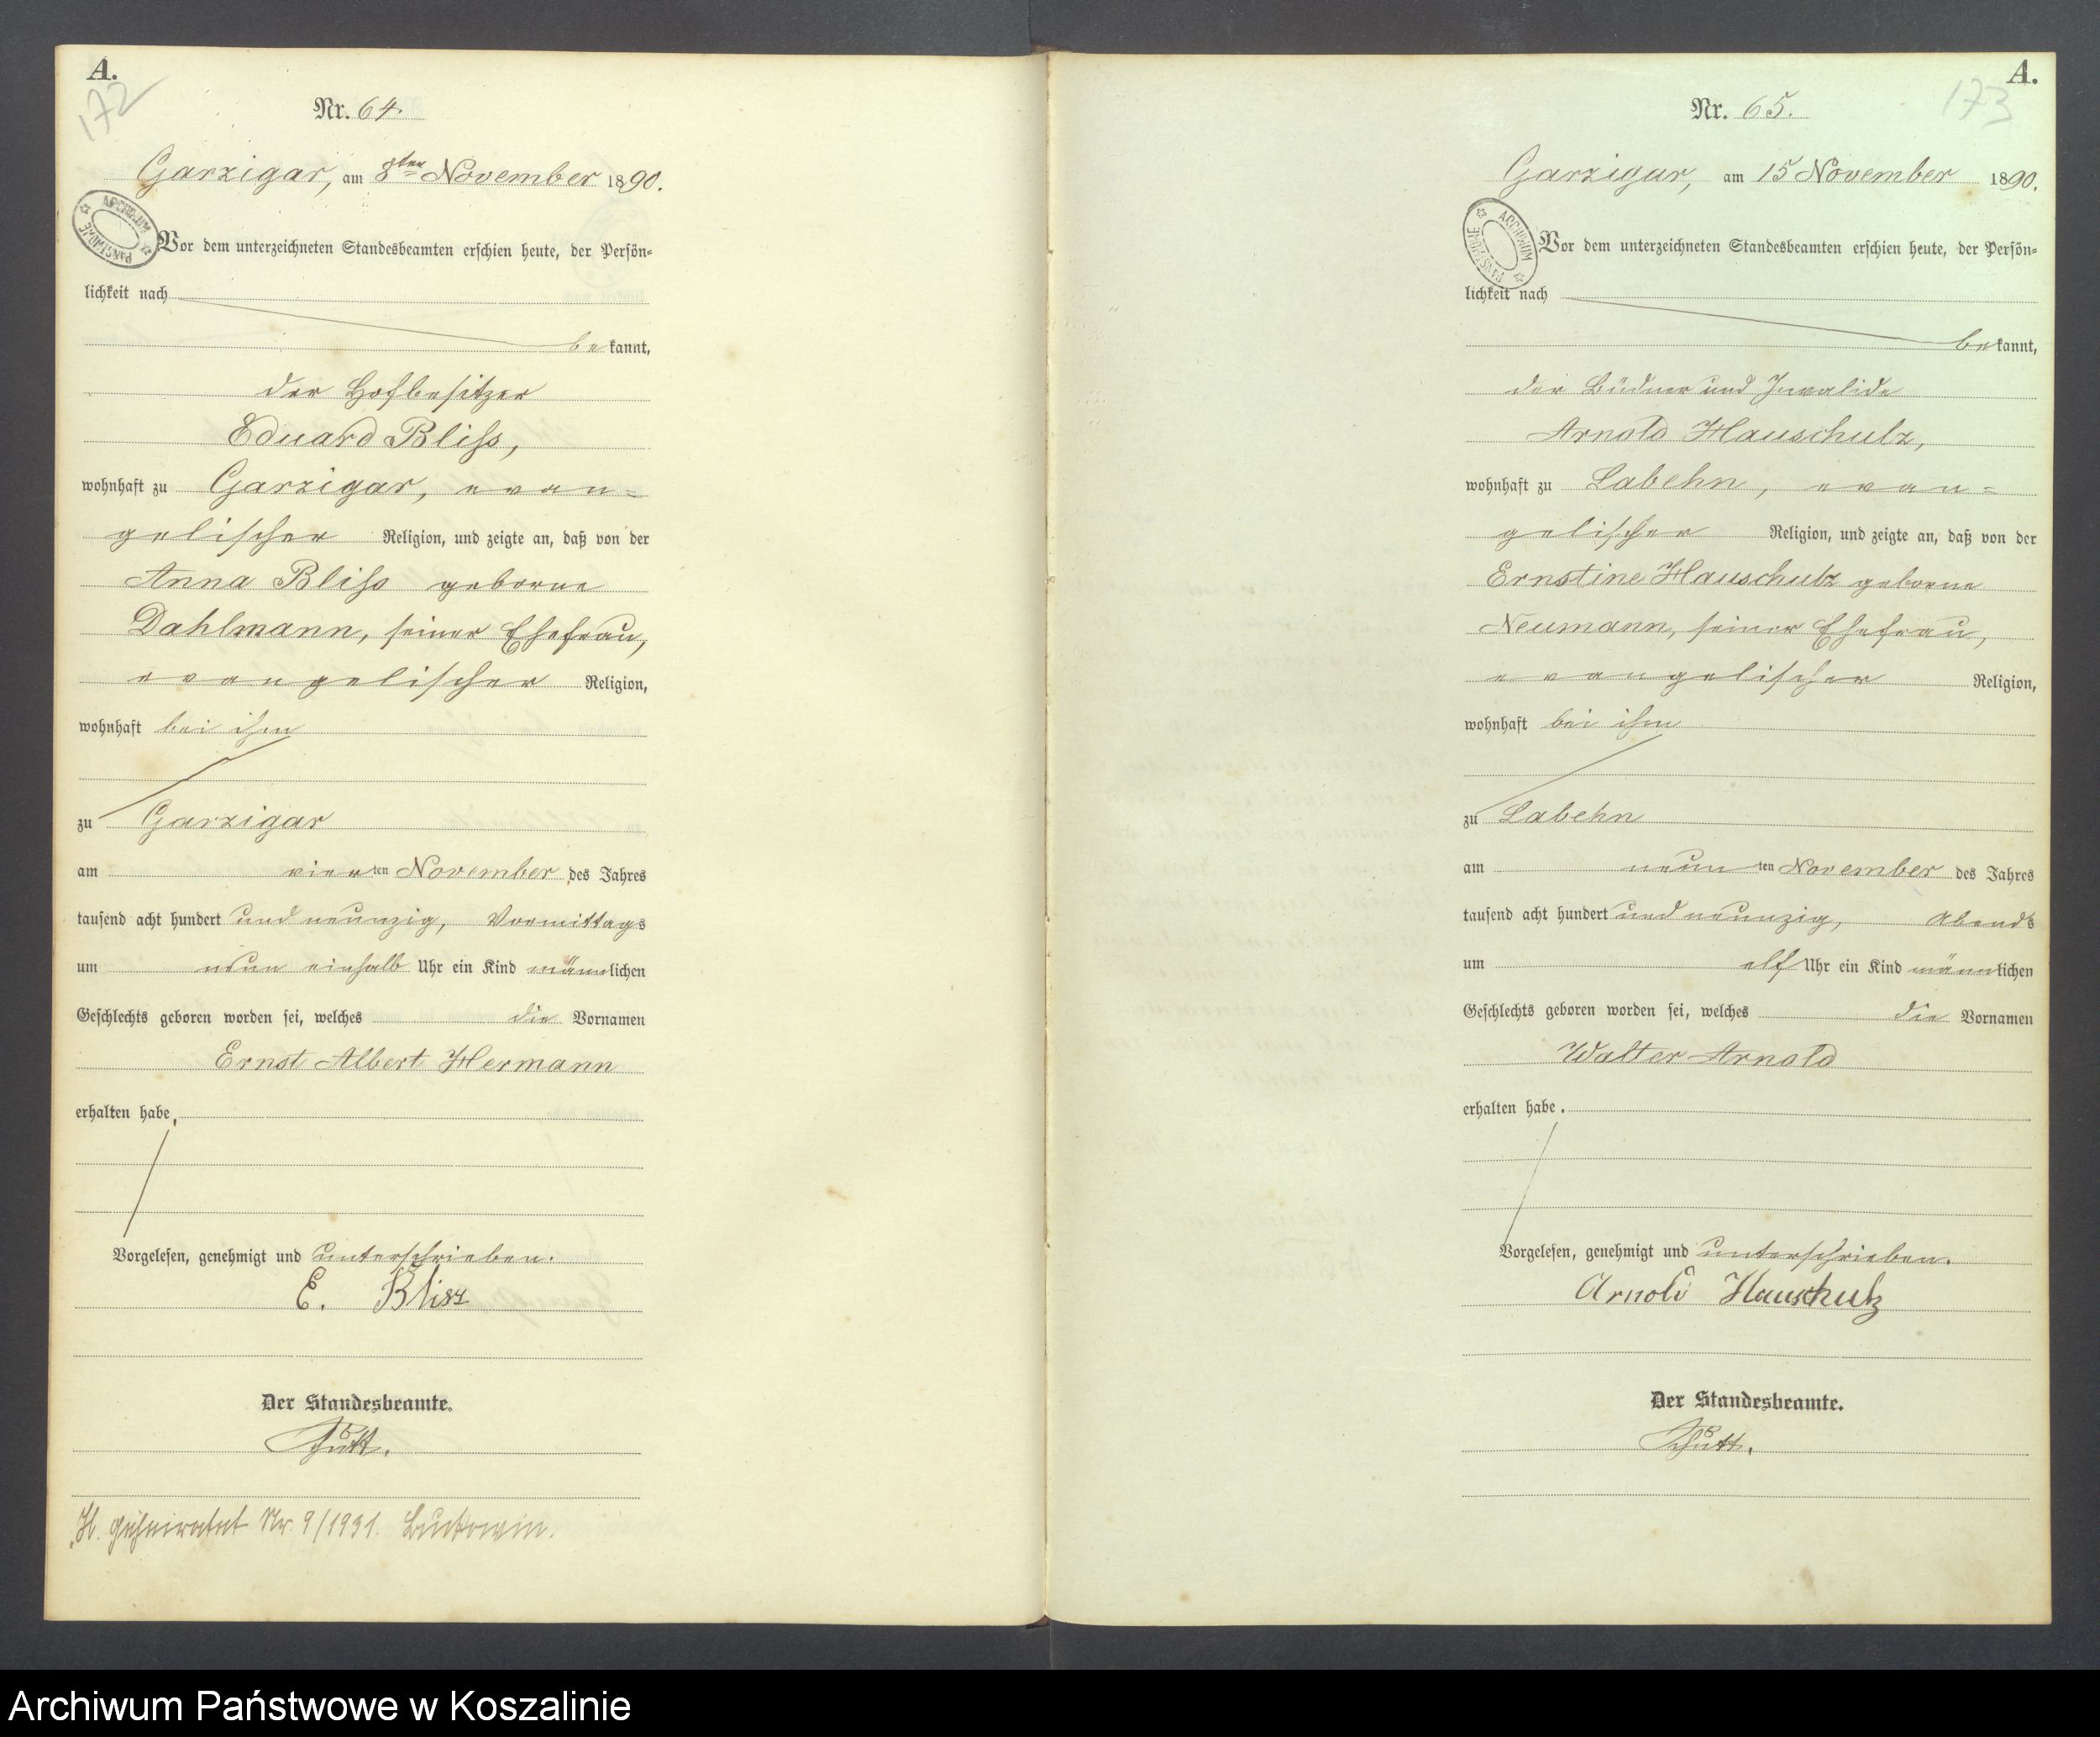 A.
172
Nr. 64.
Garzigar, am 8ten November 1890.
ARCHIWUM PAŃSTWOWE
Vor dem unterzeichneten Standesbeamten erschien heute, der Persön-
lichkeit nach
bekannt,
der Hofbesitzer
Eduard Bliss,
wohnhaft zu Garzigar, evan-
gelischer Religion, und zeigte an, daß von der
Anna Bliss geborne
Dahlmann, seiner Ehefrau,
evangelischer Religion,
wohnhaft bei ihm
zu Garzigar
am vierten November des Jahres
tausend acht hundert und neunzig, Vormittags
um neun einhalb Uhr ein Kind männlichen
Geschlechts geboren worden sei, welches die Vornamen
Ernst Albert Hermann
erhalten habe.
Vorgelesen, genehmigt und unterschrieben.
E. Blisz
Der Standesbeamte.
Schütt.
H. geheiratet Nr. 9/1931. Buckowin.
A.
173
Nr. 65.
Garzigar, am 15 November 1890.
ARCHIWUM PAŃSTWOWE
Vor dem unterzeichneten Standesbeamten erschien heute, der Persön-
lichkeit nach
bekannt,
der Büdner und Invalide
Arnold Hauschulz,
wohnhaft zu Labehn, evan-
gelischer Religion, und zeigte an, daß von der
Ernstine Hauschulz geborne
Neumann, seiner Ehefrau,
evangelischer Religion,
wohnhaft bei ihm
zu Labehn
am neunten November des Jahres
tausend acht hundert und neunzig, Abends
um elf Uhr ein Kind männlichen
Geschlechts geboren worden sei, welches die Vornamen
Walter Arnold
erhalten habe.
Vorgelesen, genehmigt und unterschrieben.
Arnold Hauschulz
Der Standesbeamte.
Schütt.
Archiwum Państwowe w Koszalinie